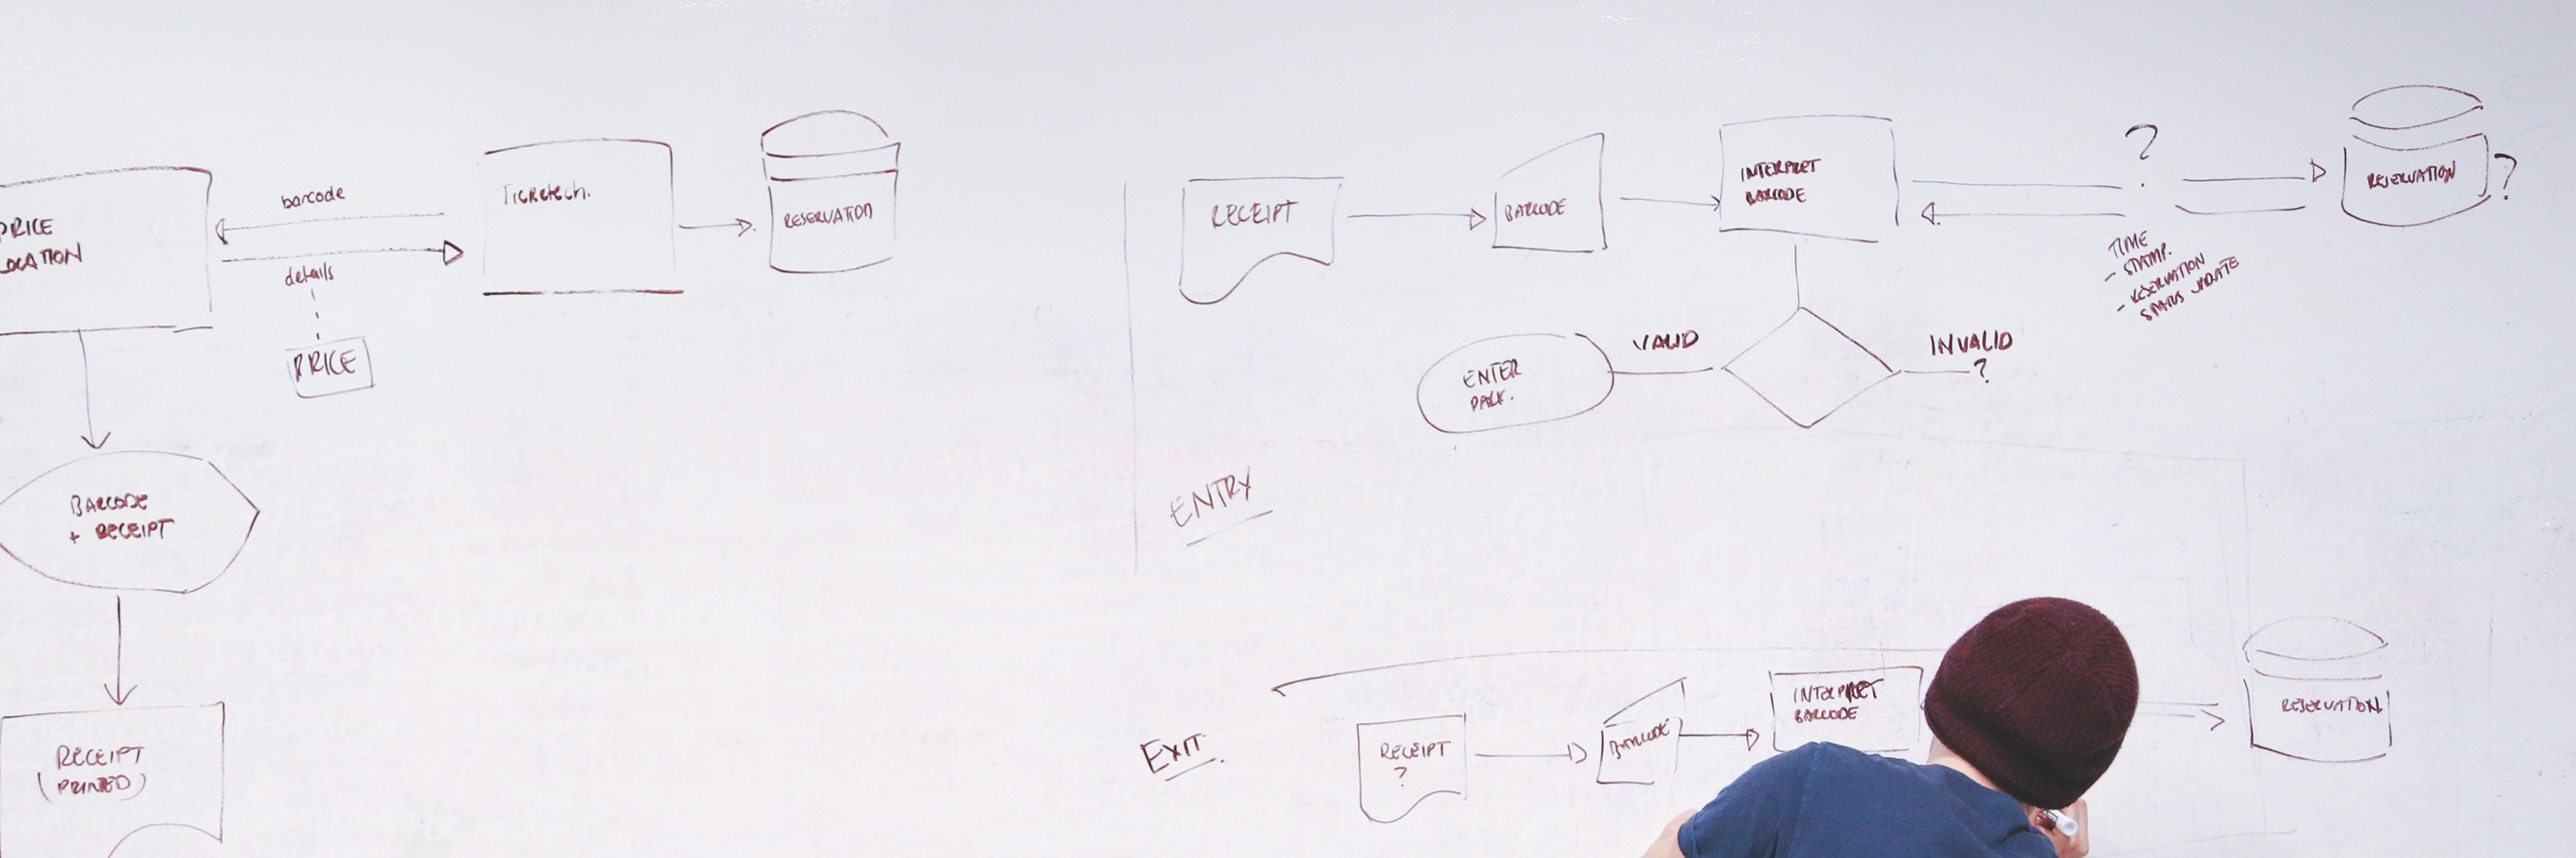 PRICE
LOCATION
barcode
details
PRICE
Ticketech.
RESERVATION
BARCODE
+ RECEIPT
RECEIPT
(PRINTED)
RECEIPT
BARCODE
INTERPRET
BARCODE
?
TIME
- STAMP.
- RESERVATION
STATUS UPDATE
RESERVATION ?
VALID
INVALID
?
ENTER
PARK.
ENTRY
EXIT.
RECEIPT
?
BARCODE
INTERPRET
BARCODE
RESERVATION